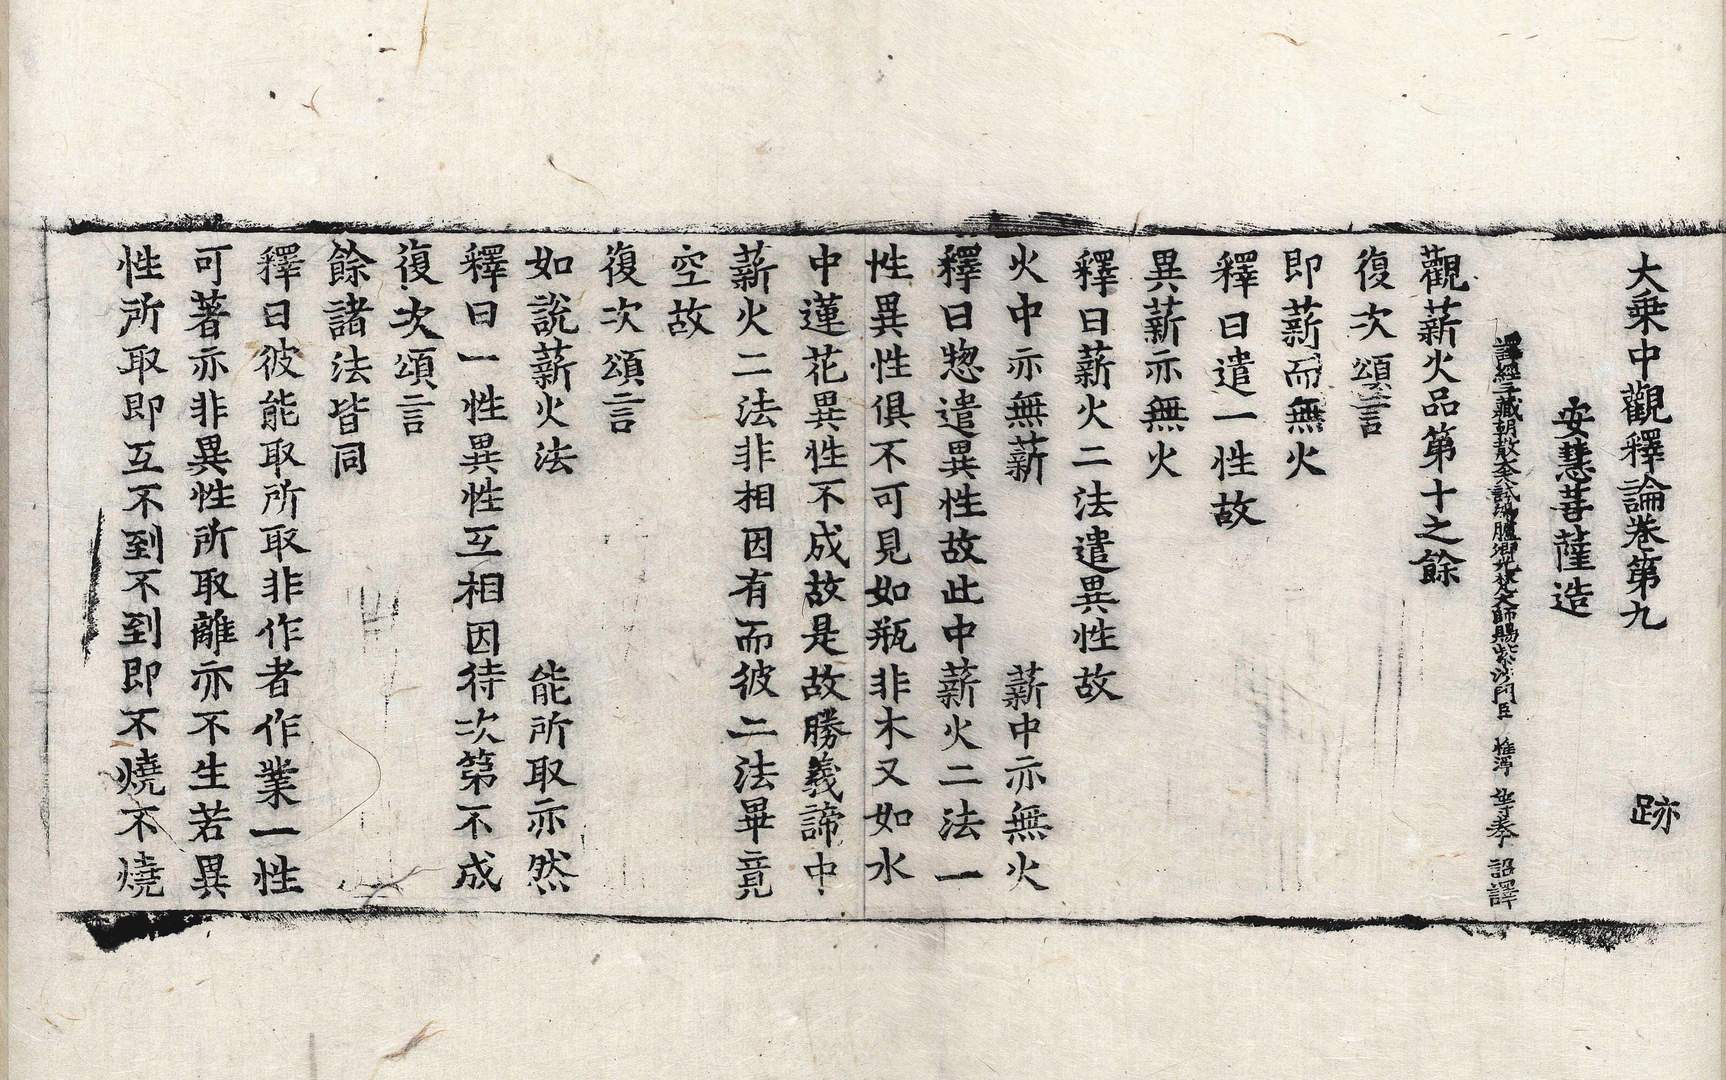 大乗中觀釋論卷第九 跡
安慧菩薩造
譯經三藏朝散大夫試鴻臚卿光梵大師賜紫沙門臣 惟淨 等奉 詔譯
觀薪火品第十之餘
復次頌言
即薪而無火
釋曰遣一性故
異薪亦無火
釋曰薪火二法遣異性故
火中亦無薪 薪中亦無火
釋曰惣遣異性故此中薪火二法一
性異性俱不可見如瓶非木又如水
中蓮花異性不成故是故勝義諦中
薪火二法非相因有而彼二法畢竟
空故
復次頌言
如說薪火法 能所取亦然
釋曰一性異性互相因待次第不成
復次頌言
餘諸法皆同
釋曰彼能取所取非作者作業一性
可著亦非異性所取離亦不生若異
性所取即互不到不到即不燒不燒